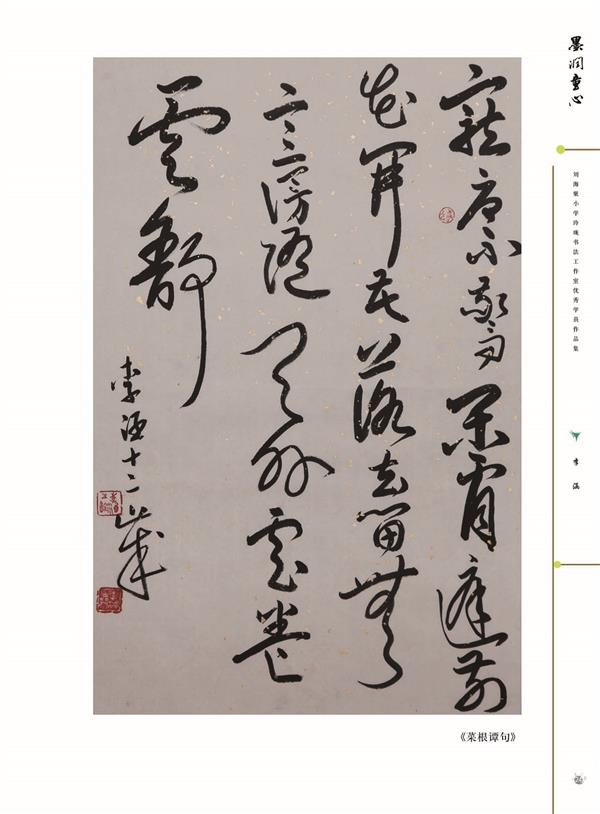 寵辱不驚閒看庭前
花開花落去留無
意漫随天外雲卷
雲舒
李涵十二歲
墨润童心
刘海粟小学玲珑书法工作室优秀学员作品集
李涵
《菜根谭句》